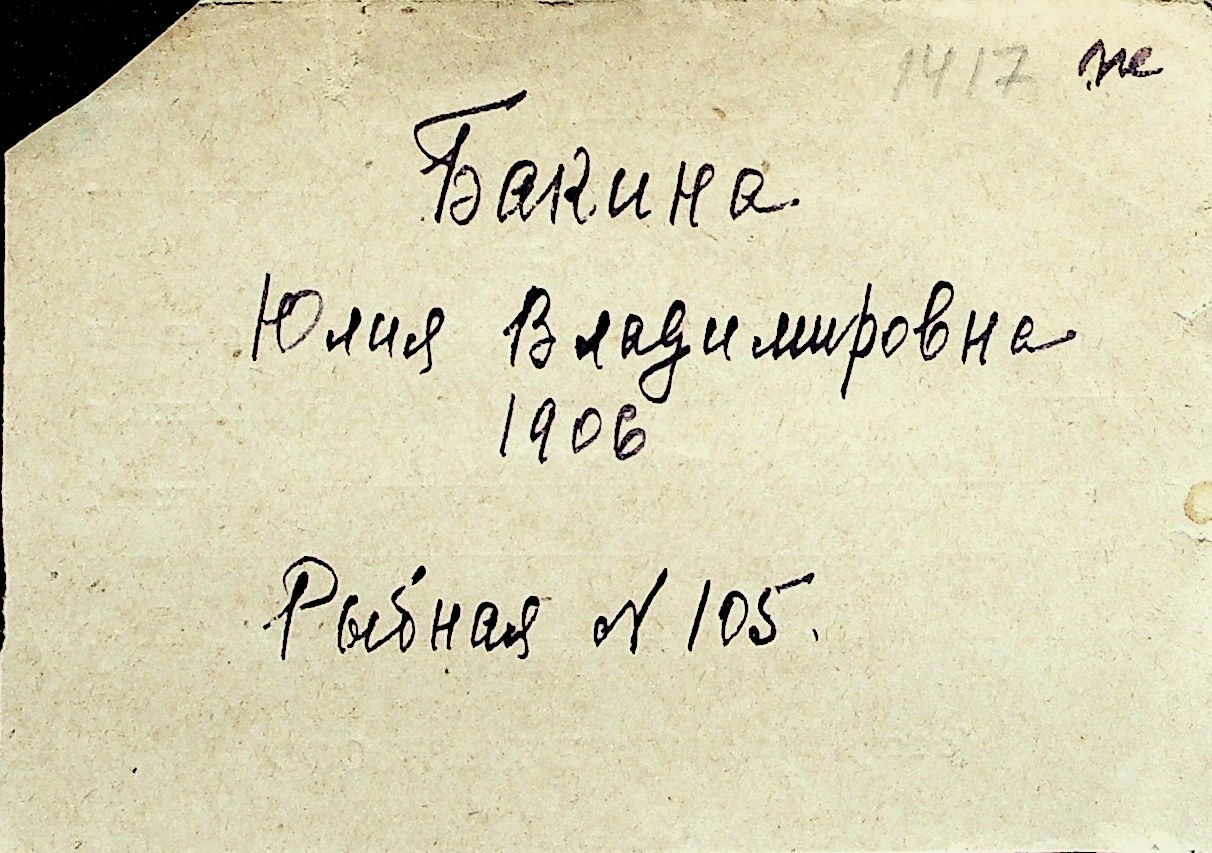 1417 же
Бакина
Юлия Владимировна
1906
Рыбная N 105.